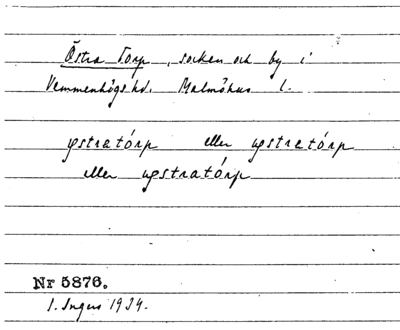 Östra Torp, socken och by i
Vemmenhögs hd. Malmöhus l.
østratórp eller ųøstratórp
eller ųøstratórp
Nr 5876.
I. Ingers 1934.